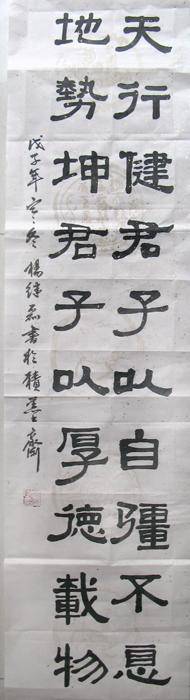 天行健君子以自彊不息
地勢坤君子以厚德載物
戊子年之冬楊継磊書於積善齋